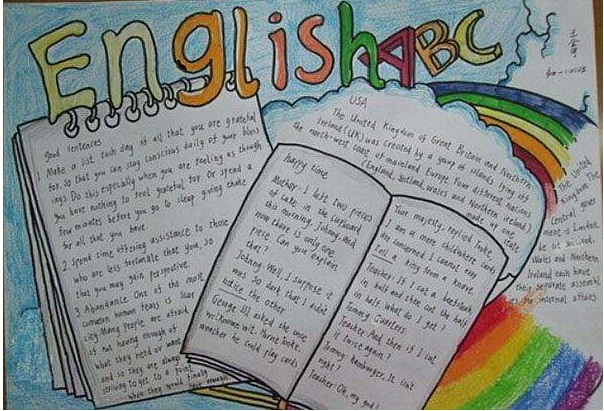 English ABC
good sentences
1 Make a list each day of all that you are grateful
for. so that you can stay conscious daily of your bless
ings Do this especially when you are feeling as though
you have nothing to feel grateful for or spend a
few minutes before you go to sleep giving thanks
for all that you have
2 spend time offering assistance to those
who are less fortunate that you, so
that you may gain perspective.
3 Abundance One of the most
common human fears is scar
city Many people are afraid
of not having enough of
what they need or want
and so they are always
striving to get to a point
when they would finally
have enough
USA
The United Kingdom of Great Britain and Northern
Ireland (UK) was created by a group of islands lying off
the north-west coast of mainland Europe Four different nations
(England, Scotland, Wales and Northern Ireland)
made up one
state
The United
Kingdom The
Central gover
ment is London,
Wales and Northern
Ireland each have
their separate assembl
ies for internal affairs
happy time
Mother: I left two pieces
of cake in the cupboard
this morning Johnny. And
now there is only one
piece. Can you explain
that?
Johnny: Well, I suppose it
was so dark that I didn't
notice the other
George III asked the once
Horne Tooke,
whether he could play cards
Your majesty, replied Tooke,
am a mere child where cards
are concerned I cannot even
tell a king from a knave.
Teacher: If I cut a beefsteak
in half and then cut the half
in half. What do I get?
Tommy: Quarters
Teacher: And then if I cut
it twice again?
Tommy: Hamburger, Is that
right?
Teacher: Oh, my god!